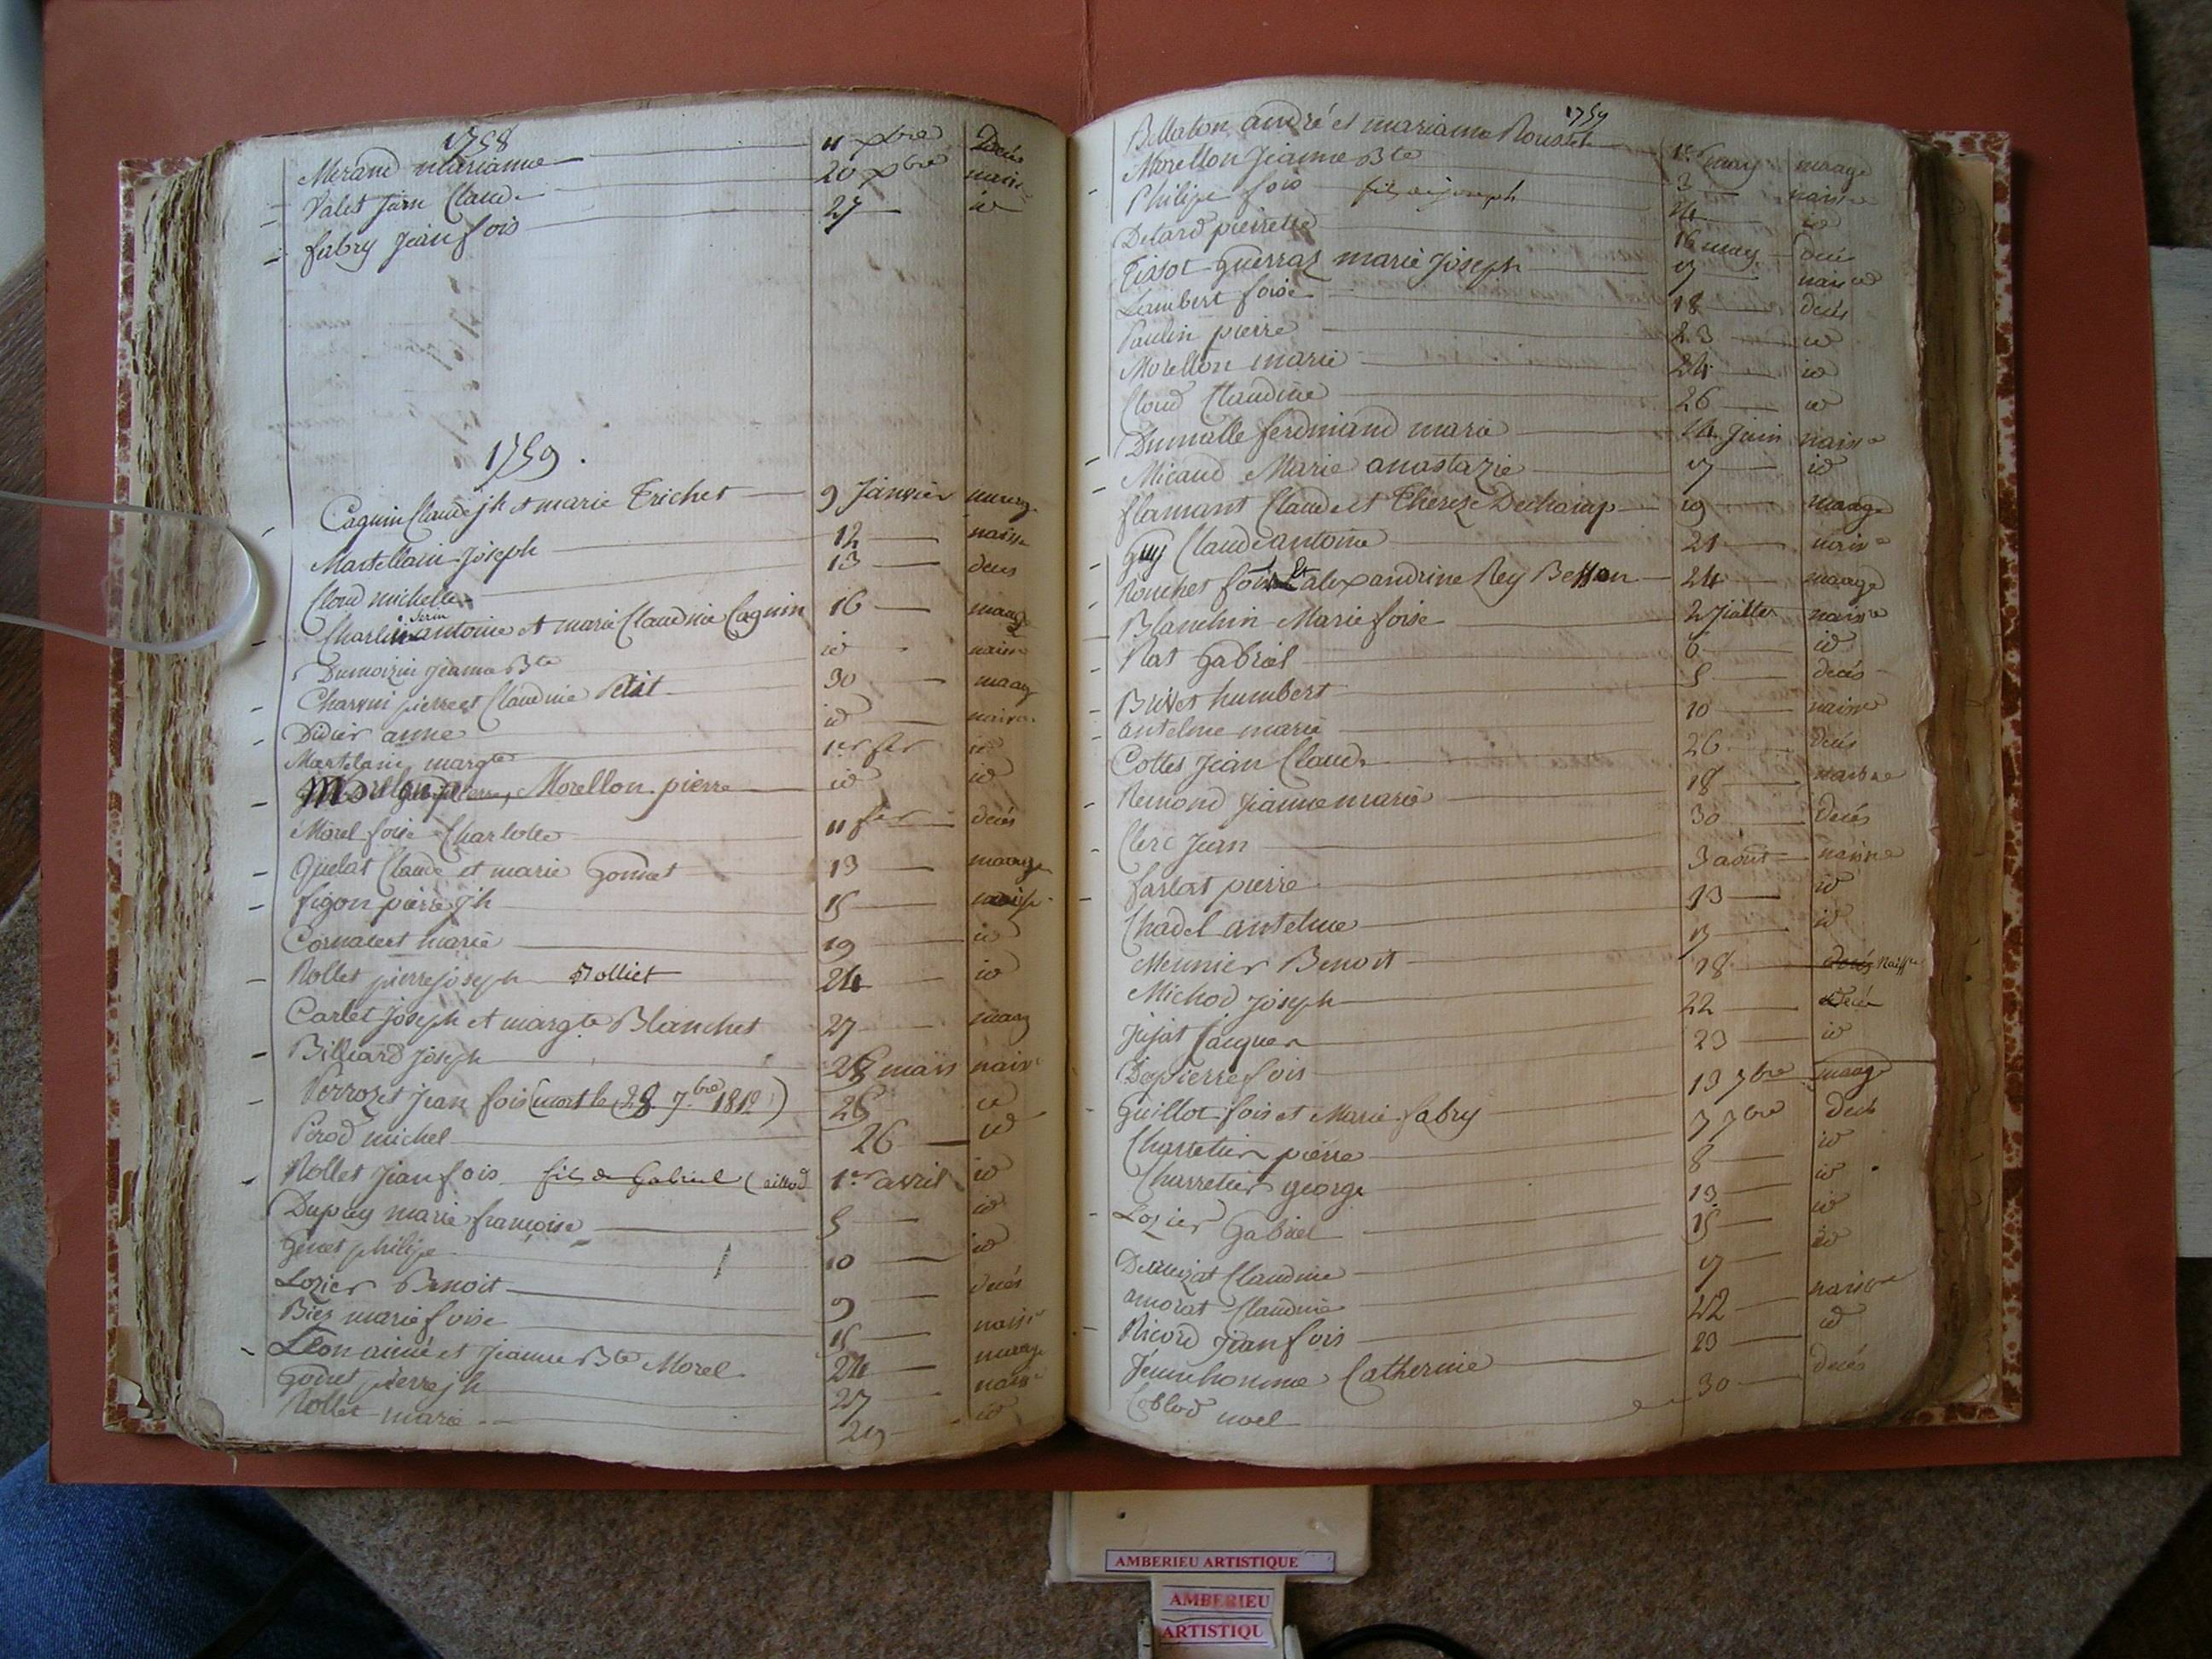 1758
Merand marianne 11 xbre Decés
Valet Jean Claude 20 xbre naiss
fabry Jean fois 27 id
1759.
Caquin Claude jh et marie Trichet 9 Janvier marag
Martellain Joseph 12 naisse
Cloud michelle 13 deces
Charlin antoine et marie Claudine Caquin 16 maag
Dumoizin jeanne Bte id naiss
Charvin pierre et Claudine Petit 30 maag
Didier anne id naiss
Martelain margte 1er fer id
Morellon pierre id id
Morel foise Charlotte 11 fer decés
Guelat Claude et marie Gonnet 13 maage
figon pierre jh 15 naiss.
Cornabert marie 19 id
Rollet pierre joseph Rolliet 24 id
Carlet Joseph et margte Blanchet 27 maag
Billiard Joseph 28 mars naiss
Verrozet jean fois (mort le 28 7.bre 1812) 26 id
Perod michel 26 id
Rollet Jean fois fils de Gabriel 1er avril id
Dupuy marie françoise 5 id
Genet philipe 10 id
Lozier Benoit 9 decés
Biez marie foise 15 naiss
Léon aimé et jeanne Bte Morel 24 marage
Godet pierre jh 27 naiss
Rollet marie 29 id
1759
Billaton andré et mariane Roustet 1er may mrage
Morellon Jeanne Bte 3 naisse
Philipe fois fils de joseph 14 id
Delard pierrette 16 may decé
Tissot Guerraz marie Joseph 17 naisse
Lambert foise 18 decés
Paulin pierre 23 id
Morellon marie 24 id
Cloud Claudine 26 id
Dumalle ferdinand marie 14 Juin naisse
Micaud Marie anastazie 17 id
flamant Claude et Thereze Dechamp 19 maage
Guy Claude antoine 21 naisse
Rouchet fois et alexandrine Rey Besson 24 maage
Blanchin Marie foise 2 Juillet naisse
Rat Gabriel 6 id
Brivet humbert 5 decés
antelme marie 10 naisse
Cottet Jean Claude 26 decés
Remond Jeanne marie 18 naisse
Clerc Jean 30 decés
farlat pierre 3 aout naisse
Chadel antelme 13 id
Meunier Benoit 13 id
Michod Joseph 18 decés Naisse
Jujat Jacques 22 decé
Depierre fois 23 id
Guillot fois et Marie fabry 13 7bre maage
Charretier pierre 7 7bre decés
Charretier george 8 id
Lozier Gabriel 13 id
Demizat Claudine 15 id
amorat Claudine 17 id
Ricord Jean fois 22 naisse
Jeunehomme Catherine 23 id
Coblod noel 30 decés
AMBERIEU ARTISTIQUE
AMBERIEU
ARTISTIQU